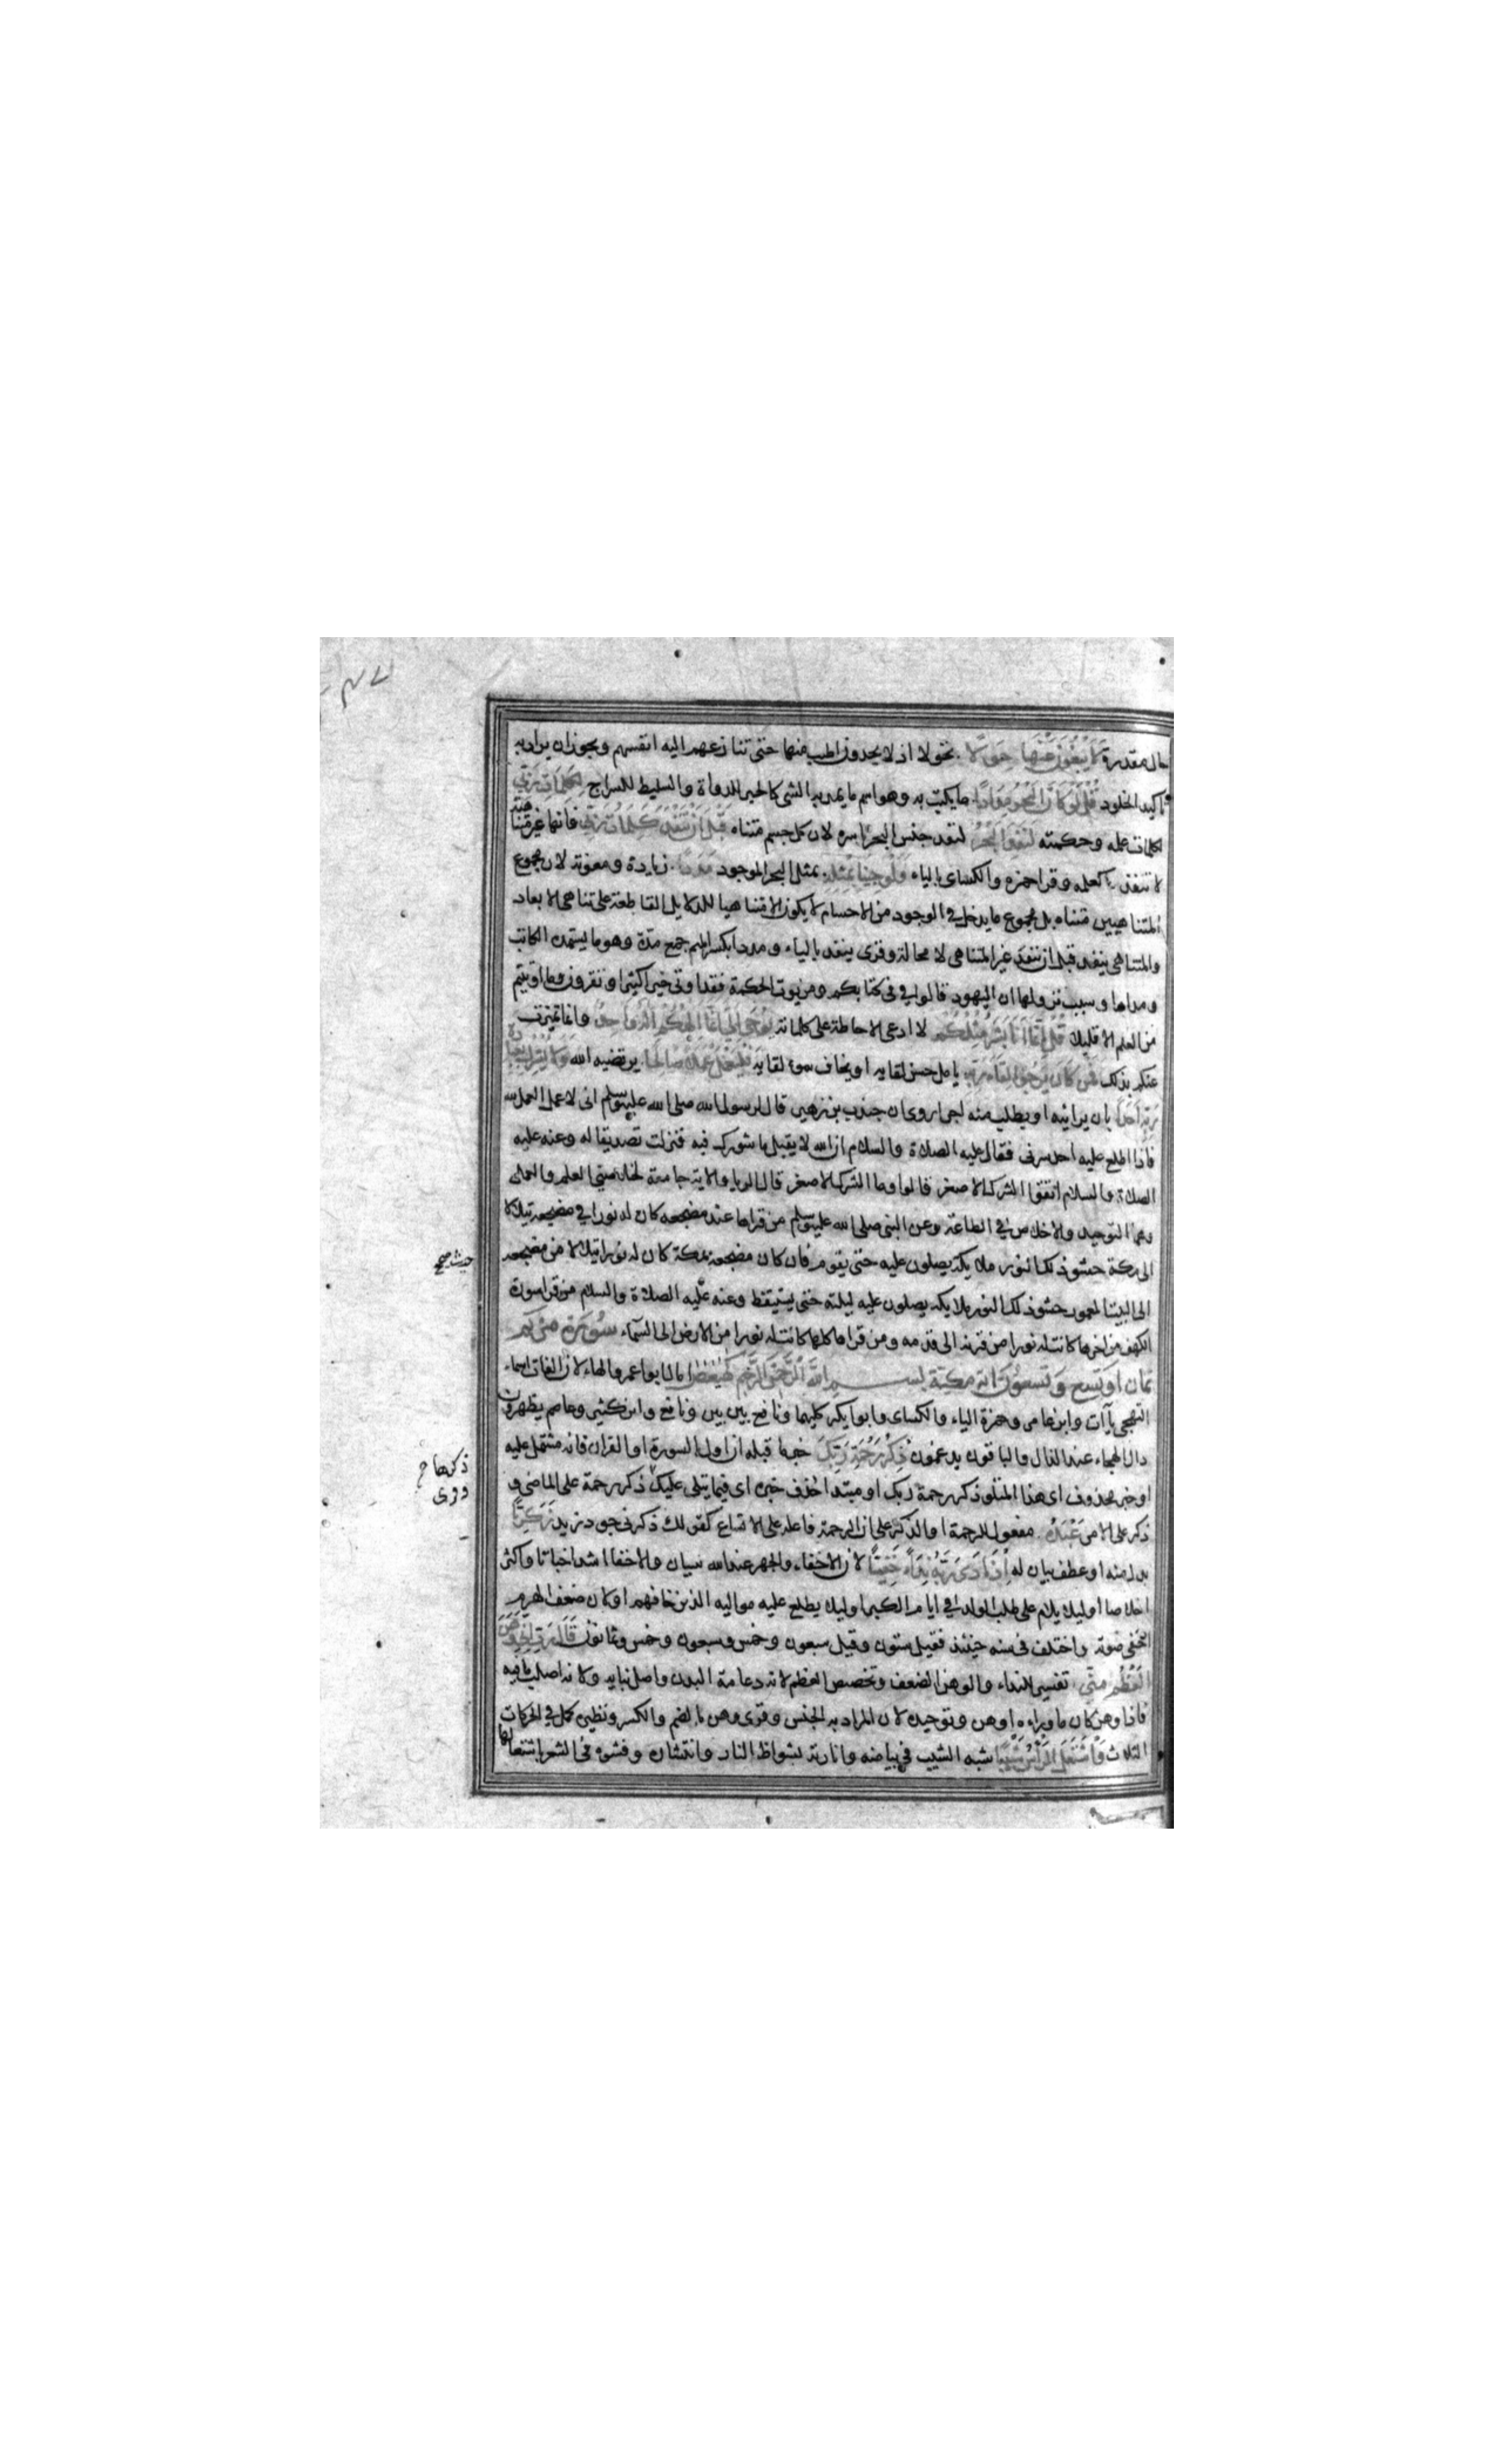 حال مقدرة لا يبغون عنها حولا تحولا اذ لا يجدون اطيب منها حتى تنازعهم اليه انفسهم ويجوز ان يراد به
تاكيد الخلود قل لو كان البحر مدادا ما يكتب به وهو اسم ما يمد به الشئ كالحبر للدواة والسليط للسراج لكلمات ربي
لكلمات علمه وحكمته لنفد البحر لنفد جنس البحر باسره لان كل جسم متناه قبل ان تنفد كلمات ربي فانها غير متناهية
لا تنفد كعلمه وقرا حمزه والكسائى بالياء ولو جئنا بمثله بمثل البحر الموجود مددا زيادة ومعونة لان مجموع
المتناهيين متناه بل مجموع ما يدخل في الوجود من الاجسام لا يكون الا متناهيا للدلايل القاطعة على تناهى الابعاد
والمتناهى ينفد قبل ان ينفد غير المتناهى لا محالة وقرى ينفد بالياء ومددا بكسر الميم جمع مدة وهو ما يستمده الكاتب
ومدادا وسبب نزولها ان اليهود قالوا في كتابكم ومن يوت الحكمة فقد اوتى خيرا كثيرا وتقرون وما اوتيتم
من العلم الا قليلا قل انما انا بشر مثلكم لا ادعى الاحاطة على كلماته يوحى الي انما الهكم اله واحد وانما تميزت
عنكم بذلك فمن كان يرجو لقاء ربه يامل حسن لقايه او يخاف سوء لقايه فليعمل عملا صالحا يرتضيه الله ولا يشرك بعبادة
ربه احدا بان يرائيه او يطلب منه اجرا روى ان جندب بن زهير قال لرسول الله صلى الله عليه وسلم انى لاعمل العمل لله
فاذا اطلع عليه احد سرنى فقال عليه الصلاة والسلام ان الله لا يقبل ما شورك فيه فنزلت تصديقا له وعنه عليه
الصلاة والسلام اتقوا الشرك الاصغر قالوا وما الشرك الاصغر قال الريا والاية جامعة لخلاصتي العلم والعمل
وهما التوحيد والاخلاص في الطاعة وعن النبى صلى الله عليه وسلم من قراها عند مضجعه كان له نورا في مضجعه يتلالا
الى مكة حشو ذلك النور ملايكة يصلون عليه حتى يقوم فان كان مضجعه بمكة كان له نورا يتلالا من مضجعه
الى البيت المعمور حشو ذلك النور ملايكه يصلون عليه ليلته حتى يستيقظ وعنه عليه الصلاة والسلام من قرا سورة
الكهف من اخرها كانت له نورا من قرنه الى قدمه ومن قراها كلها كانت له نورا من الارض الى السماء سورة مريم
ثمان او تسع وتسعون اية مكية بسم الله الرحمن الرحيم كهيعص امال ابو عمرو الهاء لان الفات اسماء
التهجي ياآت وابن عامر وحمزة الياء والكسائى وابو بكر كليهما ونافع بين بين ونافع وابن كثير وعاصم يظهرون
دال الهجاء عند الذال والباقون يدغمون ذكر رحمة ربك خبر ما قبله ان اول بالسورة او القران فانه مشتمل عليه
او خبر محذوف اى هذا المتلو ذكر رحمة ربك او مبتدا حذف خبره اى فيما يتلى عليك ذكر رحمة على الماضى و
ذكر على الامر عبده مفعول الرحمة او الذكر على ان الرحمة فاعله على الاتساع كقولك ذكرنى جود زيد زكريا
بدل منه او عطف بيان له اذ نادى ربه نداء خفيا لان الاخفاء والجهر عند الله سيان والاخفا اشد اخباتا واكثر
اخلاصا او ليلا يلام على طلب الولد في ايام الكبر او ليلا يطلع عليه مواليه الذين خافهم او كان ضعف الهرم
اخفى صوته واختلف في سنه حينئذ فقيل ستون وقيل سبعون وخمس وسبعون وخمس وثمانون قال رب اني وهن
العظم مني تفسير للنداء والوهن الضعف وتخصيص العظم لانه دعامة البدن واصل بنايه ولانه اصلب ما فيه
فاذا وهن كان ما وراءه اوهن وتوحيده لان المراد به الجنس وقرى وهن بالضم والكسر ونظيره كمل في الحركات
الثلاث واشتعل الراس شيبا شبه الشيب في بياضه وانارته بشواظ النار وانتشاره وفشوه في الشعر باشتعالها
حديث صحيح
ذكرها ح